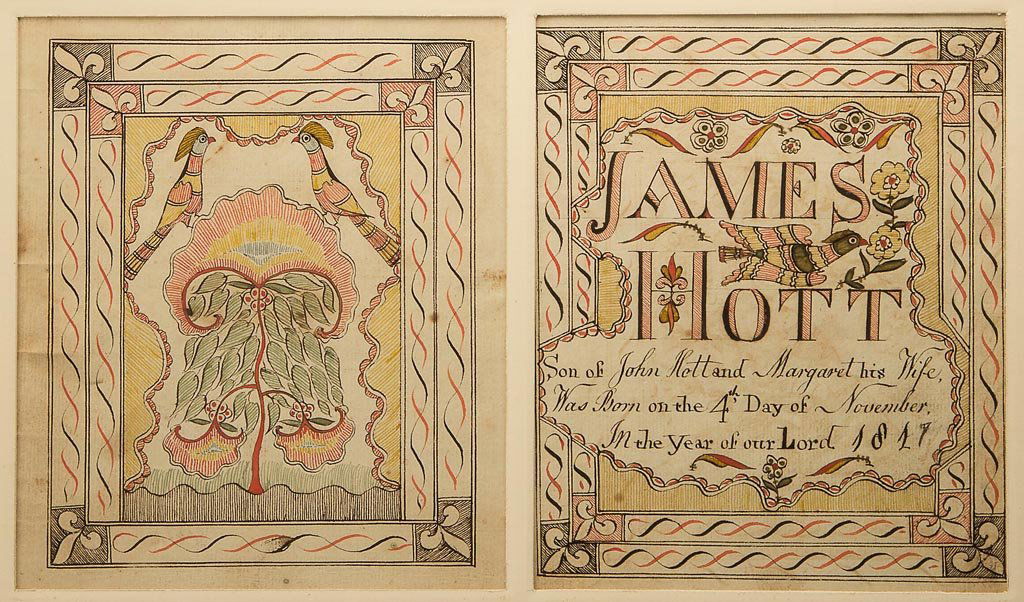 JAMES
HOTT
Son of John Hott and Margaret his Wife,
Was Born on the 4th Day of November,
In the Year of our Lord 1817